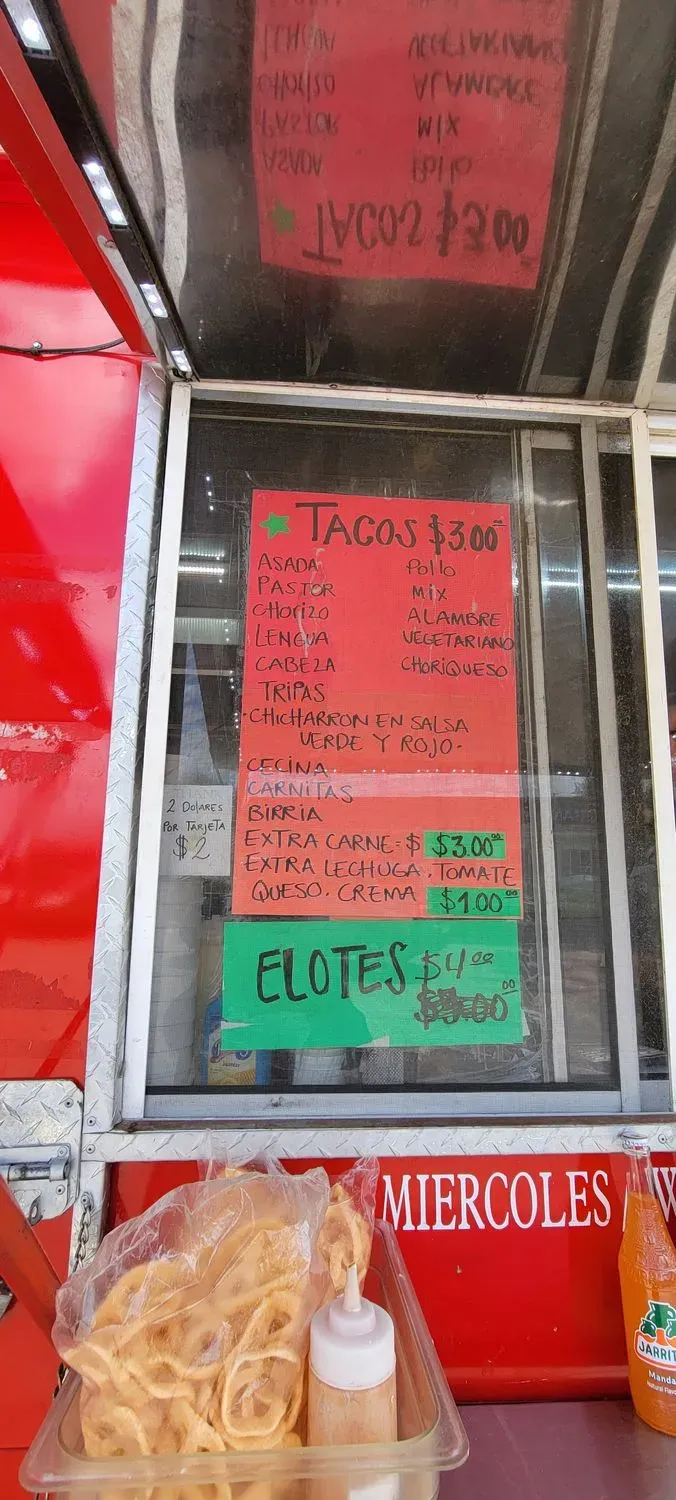 TACOS $3.00
ASADA Pollo
PASTOR MIX
CHORIZO ALAMBRE
LENGUA VEGETARIANO
CABEZA CHORIQUESO
TRIPAS
CHICHARRON EN SALSA
VERDE Y ROJO.
CECINA
CARNITAS
BIRRIA
EXTRA CARNE = $ $3.00
EXTRA LECHUGA, TOMATE
QUESO. CREMA $1.00
2 DOLARES
POR TARJETA
$2
ELOTES $4.00
MIERCOLES / W
JARRIT
Manda
Natural Flavo